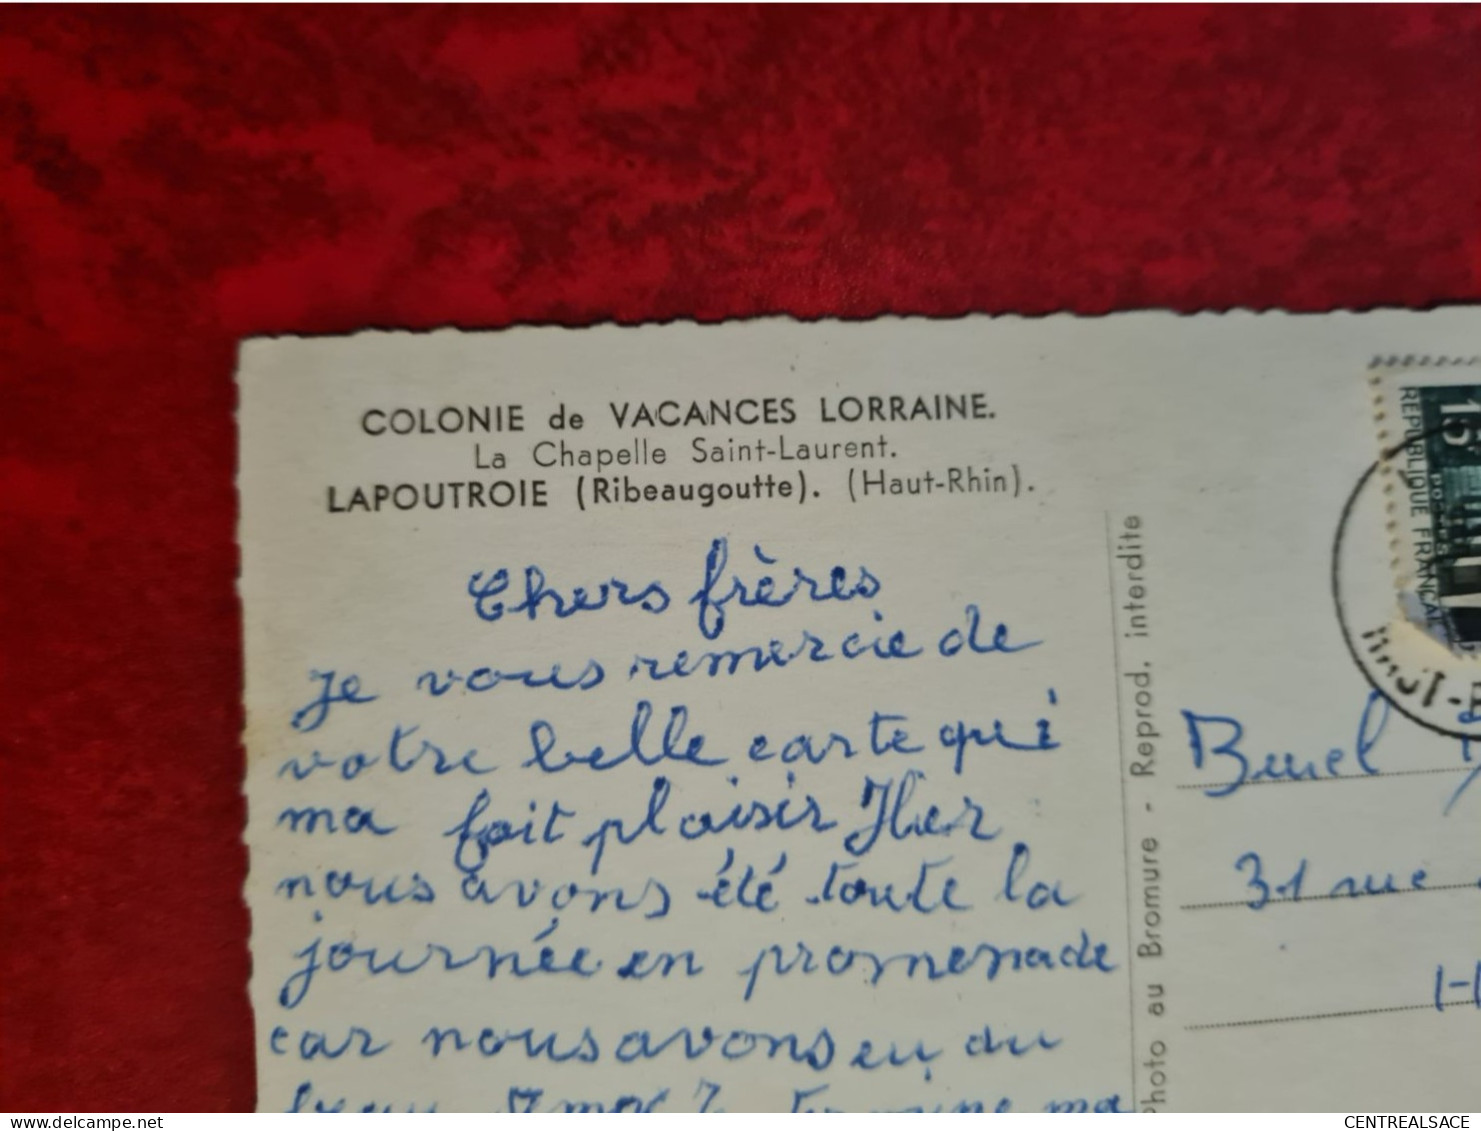 COLONIE de VACANCES LORRAINE.
La Chapelle Saint-Laurent.
LAPOUTROIE (Ribeaugoutte). (Haut-Rhin).
Chers frères
Je vous remercie de
votre belle carte qui
ma fait plaisir Hier
nous avons été toute la
journée en promenade
car nous avons eu du
beau termine ma
Photo au Bromure - Reprod. interdite
15
REPUBLIQUE FRANCAISE
POSTES
HAUT-R
31 rue
delcampe.net
CENTREALSACE